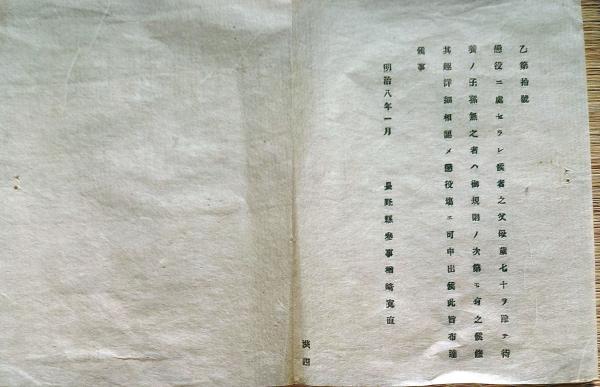 乙第拾號
懲役ニ處セラレ候者之父母歳七十ヲ踰テ待
養ノ子孫無之者ハ御規則ノ次第モ有之候條
其趣詳細相認メ懲役塲ニ可申出候此旨布達
候事
明治八年一月　長野縣參事楢崎寛直